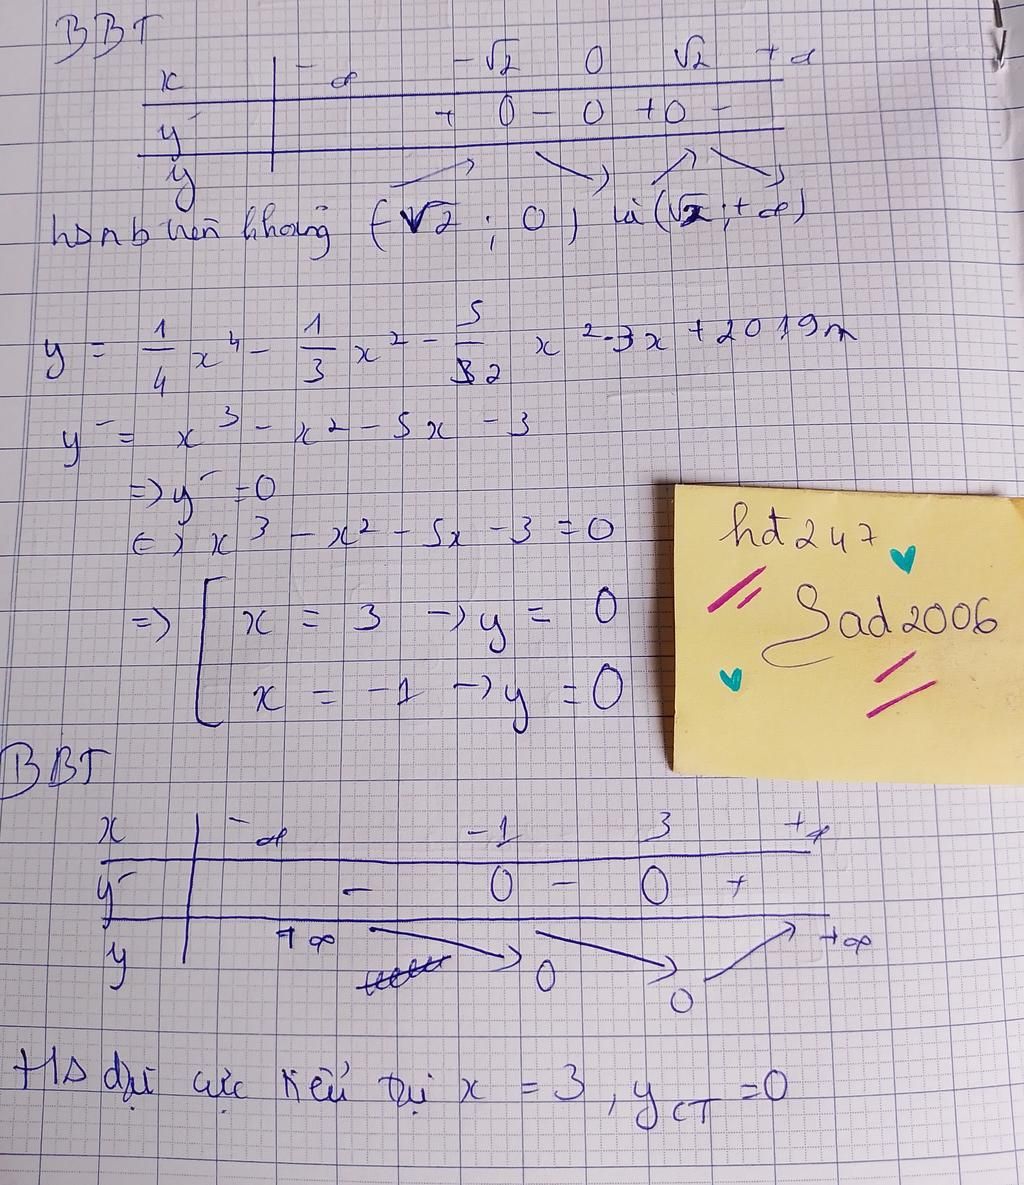 BBT
x -∞ -√2 0 √2 +∞
y' + 0 - 0 + 0 -
y
hsnb trên khoảng (-√2 ; 0) và (√2 ; +∞)
y = 1/4 x^4 - 1/3 x^2 - 5/2 x^2 - 3x + 2019m
y' = x^3 - x^2 - 5x - 3
=> y' = 0
<=> x^3 - x^2 - 5x - 3 = 0
=> [ x = 3 → y = 0
x = -1 → y = 0
hđ247
Sad2006
BBT
x -∞ -1 3 +∞
y' - 0 - 0 +
y +∞ 0 0 +∞
HS đạt cực tiểu tại x = 3, yCT = 0